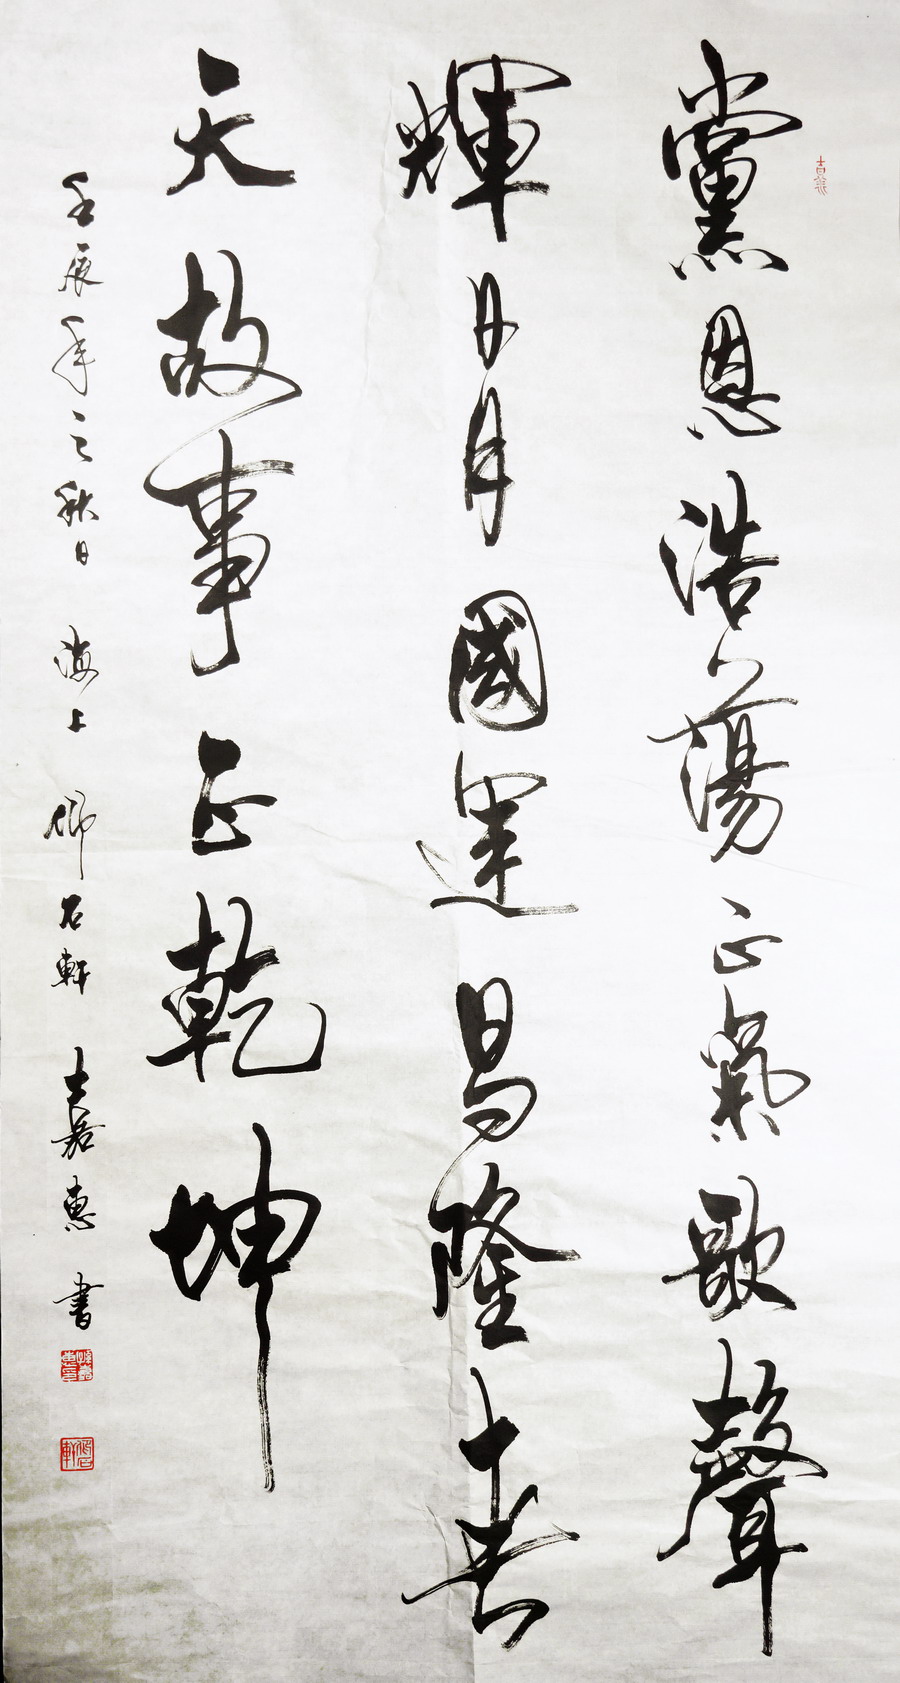 黨恩浩蕩正氣歌聲
輝日月國運昌隆春
天故事正乾坤
壬辰年之秋日 海上 仰石軒 嘉惠 書